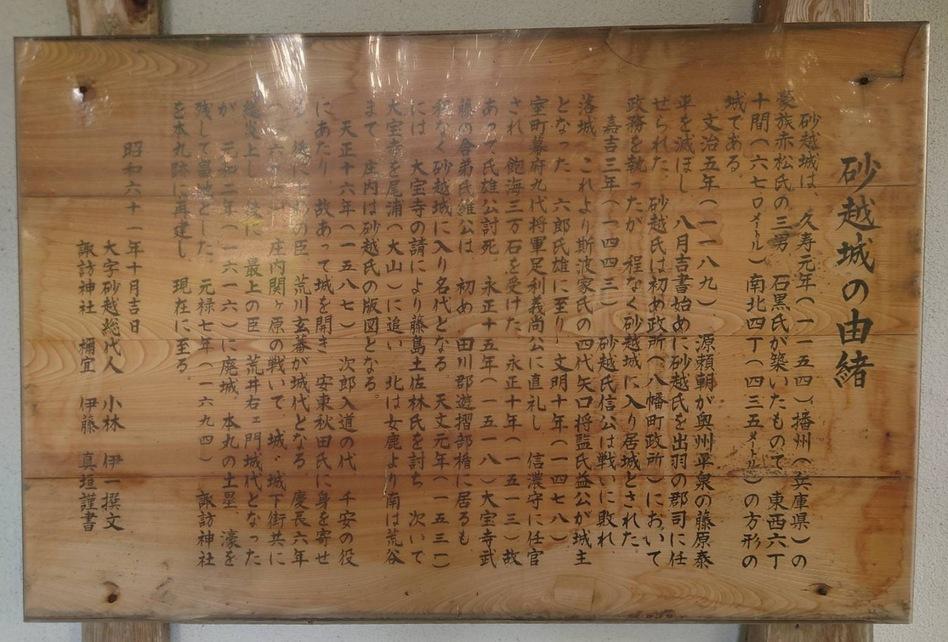 砂越城の由緒
砂越城は、久寿元年（一一五四）播州（兵庫県）の
豪族赤松氏の三男 石黒氏が築いたもので 東西六丁
十間（六七〇メートル）南北四丁（四三五メートル）の方形の
城である
文治五年（一一八九） 源頼朝が奥州平泉の藤原泰
平を滅ぼし 八月吉書始めに砂越氏を出羽の郡司に任
せられた、 砂越氏は初め政所（八幡町政所）において
政務を執ったが 程なく砂越城に入り居城とされた
嘉吉三年（一四四三） 砂越氏信公は戦いに敗れ
落城 これより斯波家氏の四代矢口将監氏益公が城主
となった 六郎氏雄に至り 文明十年（一四七八）
室町幕府九代将軍足利義尚公に直礼し 信濃守に任官
され 飽海三万石を受けた、永正十年（一五一三）故
あって氏雄公討死 永正十五年（一五一八）大宝寺武
藤の舎弟氏維公は 初め 田川郡遊摺部楯に居るも
程なく砂越城に入り名代となる、 天文元年（一五三二）
には 大宝寺の請により藤島土佐林氏を討ち 次いで
大宝寺を尾浦（大山）に追い 北は女鹿より南は荒谷
まで 庄内は砂越氏の版図となる。
天正十六年（一五八七） 次郎入道の代 千安の役
にあたり 故あって城を開き 安東秋田氏に身を寄せ
の臣 荒川玄蕃が城代となる 慶長六年
庄内関ヶ原の戦いで 城・城下街共に
焼炎上し 後に 最上の臣 荒井右ェ門城代となった
が 元和二年（一六一六）に廃城 本丸の土塁 濠を
残して畠地とした、 元禄七年（一六九四） 諏訪神社
を本丸跡に再建し 現在に至る。
昭和六十一年十月吉日
大字砂越総代人 小林 伊一撰文
諏訪神社 禰宜 伊藤 真垣謹書